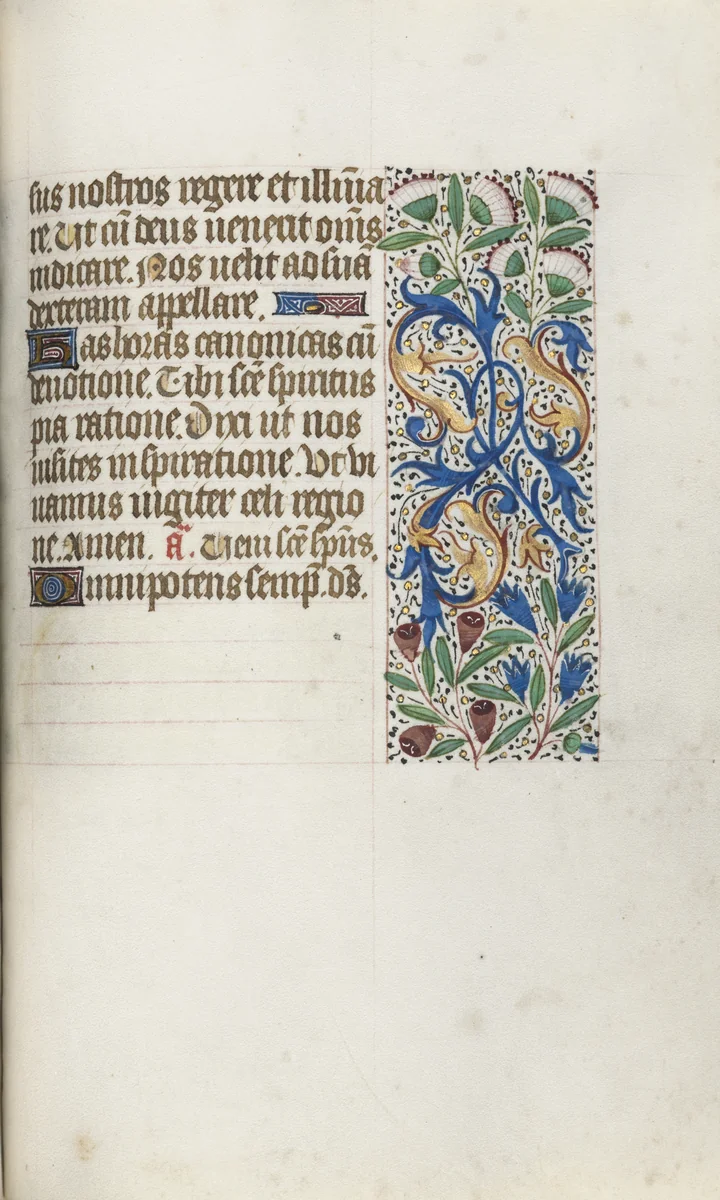 sus nostros regere et illūīa
re. Ut cū deus uenerit om̄s
iudicare. Nos uelit ad suā
dexteram appellare.
Has horas canonicas cū
deuotione. Tibi scē spiritus
pia ratione. Dixi ut nos
uisites inspiratione. Vt vi
uamus iugiter celi regio
ne. Amen. a͞. Veni scē sp̄us.
Omnipotens semp̄. ds̄.